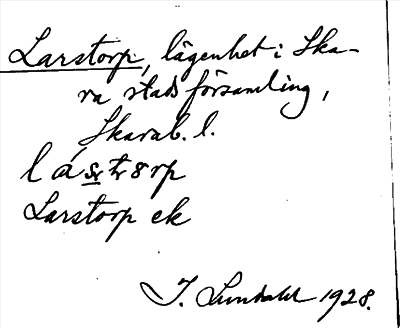 Larstorp, lägenhet i Ska-
ra stadsförsamling,
Skarab. l.
Larstorp ek
I. Lundahl 1928.